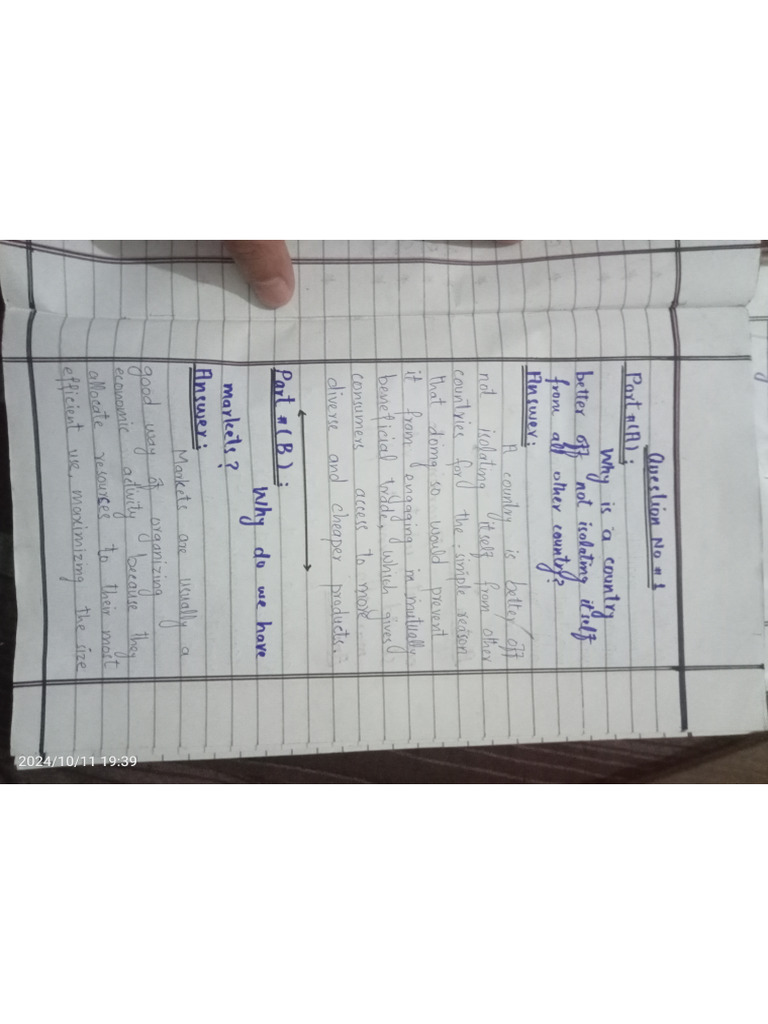 Question No # 1
Part #(A):
Why is a country
better off not isolating itself
from all other country?
Answer:
A country is better off
not isolating itself from other
countries for the simple reason
that doing so would prevent
it from engaging in mutually
beneficial trade, which gives
consumers access to more
diverse and cheaper products.
Part #(B):
Why do we have
markets?
Answer:
Markets are usually a
good way of organizing
economic activity because they
allocate resources to their most
efficient use, maximizing the size
2024/10/11 19:39